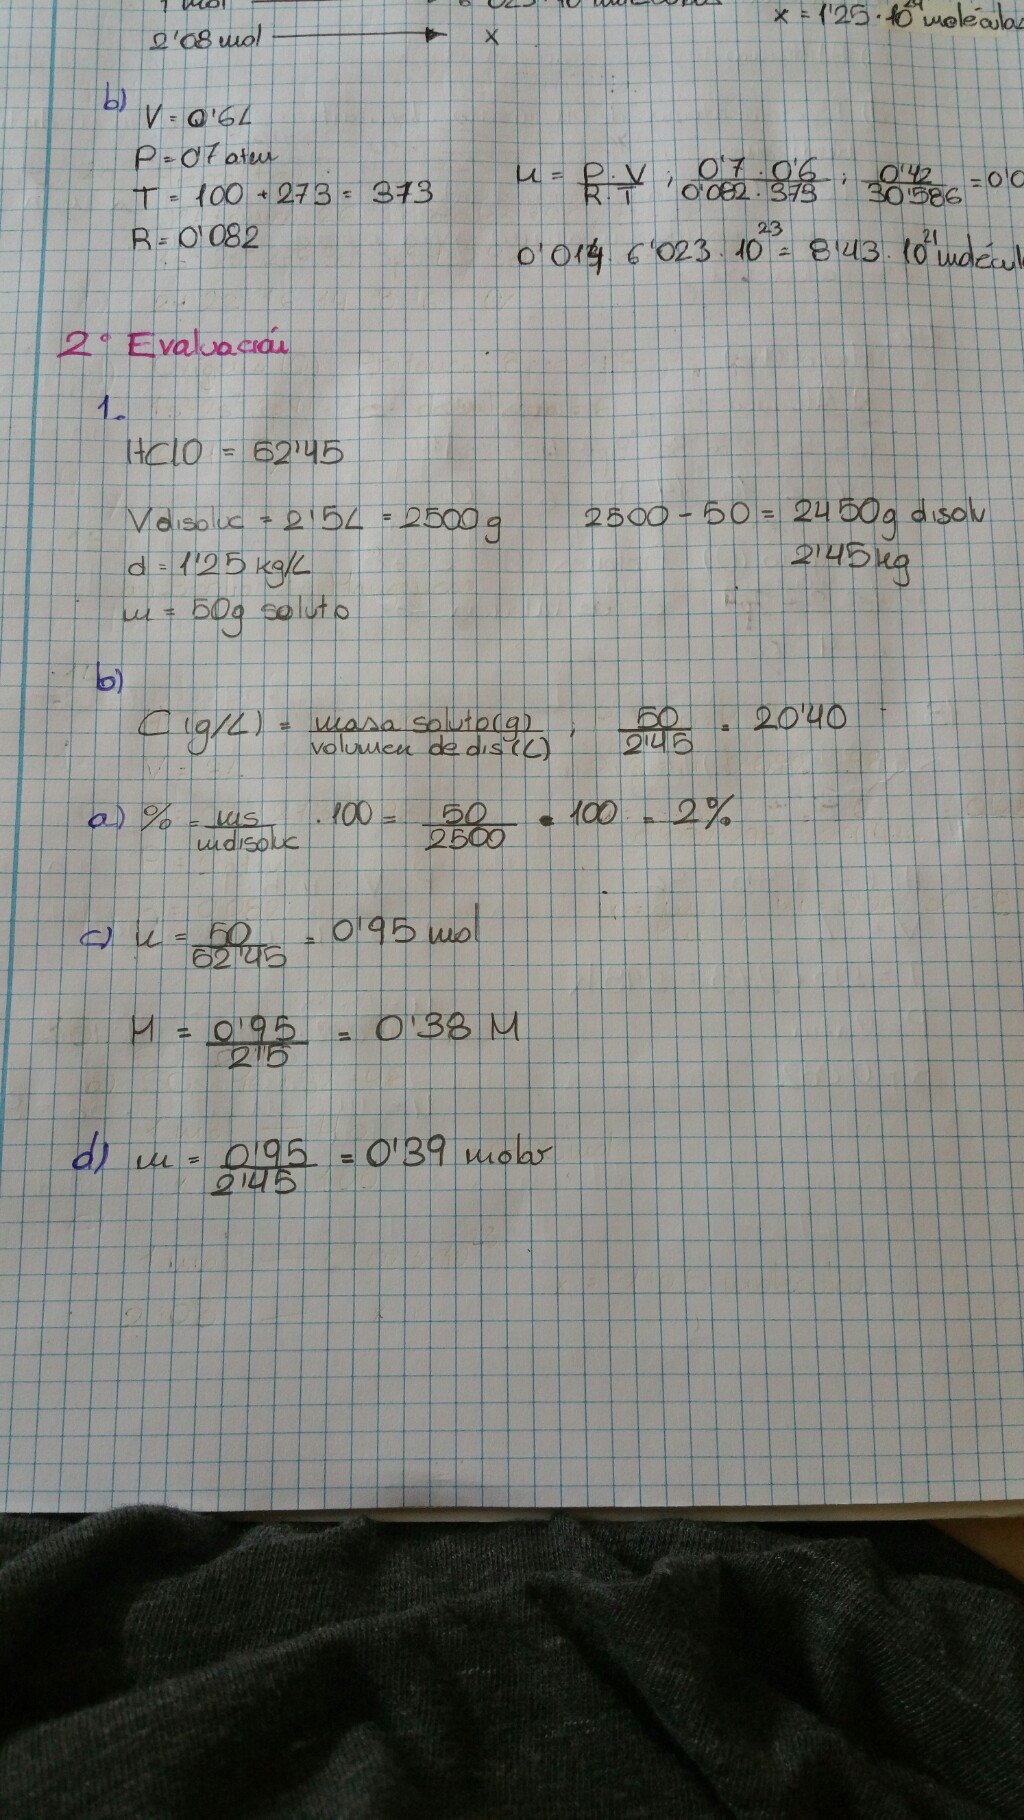 1 mol
x = 1'25 · 10²⁴ molécula
2'08 mol → x
b)
V = 0'6L
P = 0'7 atm
T = 100 + 273 = 373
R = 0'082
n = P·V / R·T ; 0'7 · 0'6 / 0'082 · 373 ; 0'42 / 30'586 = 0'0
0'014 · 6'023 · 10²³ = 8'43 · 10²¹ molécul
2º Evaluación
1.
HClO = 52'45
Vdisoluc = 2'5L = 2500g 2500 - 50 = 2450g disolv
d = 1'25 kg/L 2'45 kg
m = 50g soluto
b)
C (g/L) = masa soluto (g) / volumen de dis (L) ; 50 / 2'45 = 20'40
a) % = ms / mdisoluc · 100 = 50 / 2500 · 100 = 2%
c) n = 50 / 52'45 = 0'95 mol
M = 0'95 / 2'5 = 0'38 M
d) m = 0'95 / 2'45 = 0'39 molar